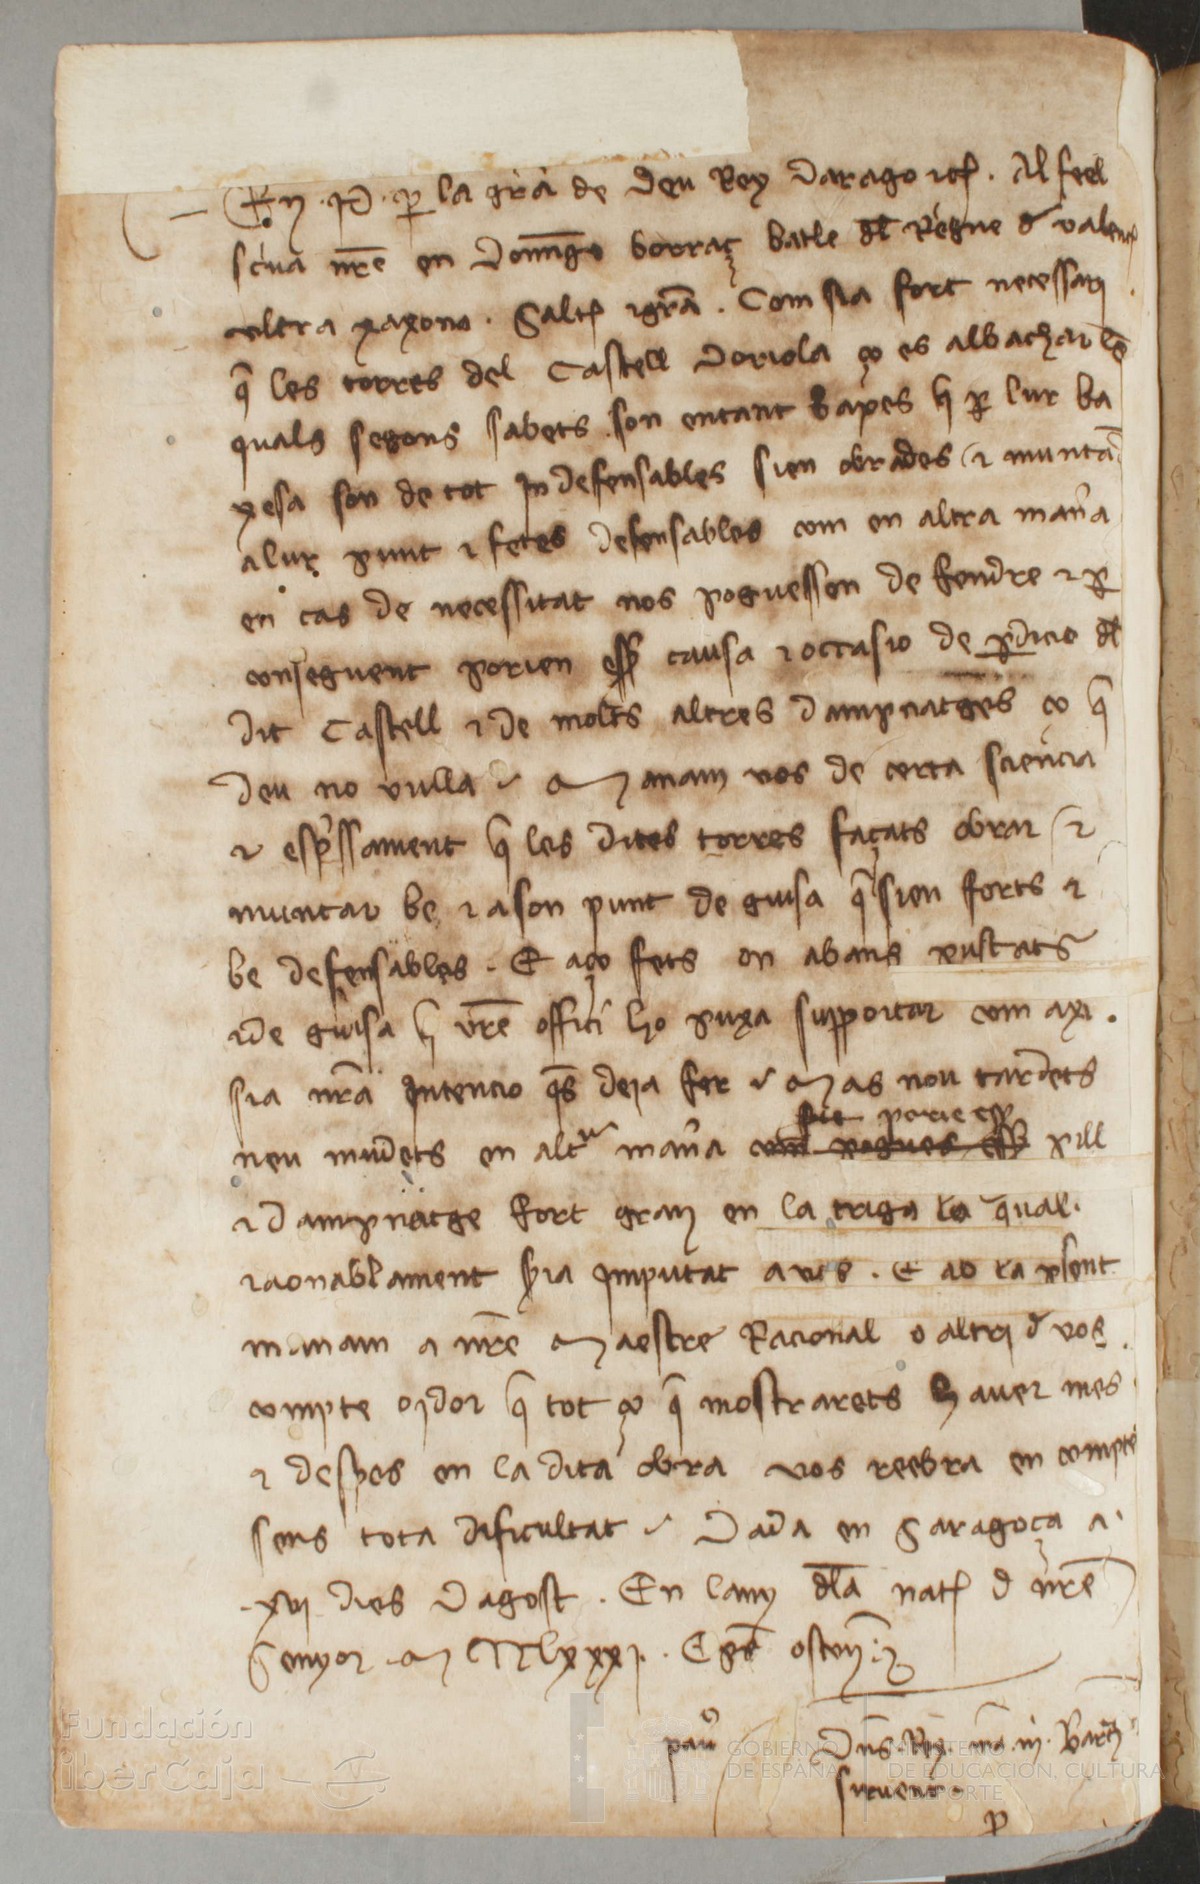 En .P. per la gra de deu Rey Darago etc. Al feel
scriva nre en Domingo borraç batle del Regne de valenc
ultra xaxono. Salut e gra. Com sia fort necessari
que les torres del Castell Doriola ço es albachar les
quals segons sabets son entant baxes que per lur ba
xesa son de tot Indefensables sien obrades e muntad
a lur punt e fetes defensables com en altra mana
en cas de necessitat nos poguessen defendre e per
conseguent porien esser causa e occasio de perdicio del
dit Castell e de molts altres dampnatges ço que
deu no vulla Manam vos de certa sciencia
e expressament que les dites torres façats obrar e
muntar be e a son punt de guisa que sien forts e
be defensables. E aço fets on abans puscats
e de guisa que vre offici ho puxa supportar com axi.
sia nra Intencio ques deja fer Mas nou tardets
neu mudets en altra mana com pogues esser pill
fort porie esser
e dampnatge fort gran en la triga la qual.
raonablament seria Imputat a vos. E ab la present
manam a nre Maestre Racional o altri de vos.
compte oydor que tot ço que mostrarets haver mes
e despes en la dita obra vos reebra en compte
sens tota dificultat Dada en Saragoça a.
.xvi. dies Dagost. En lany dela nat de nre
Senyor. MCCCLxxxi.
pau
Dns Rex ma m Barth
sirvent.
P